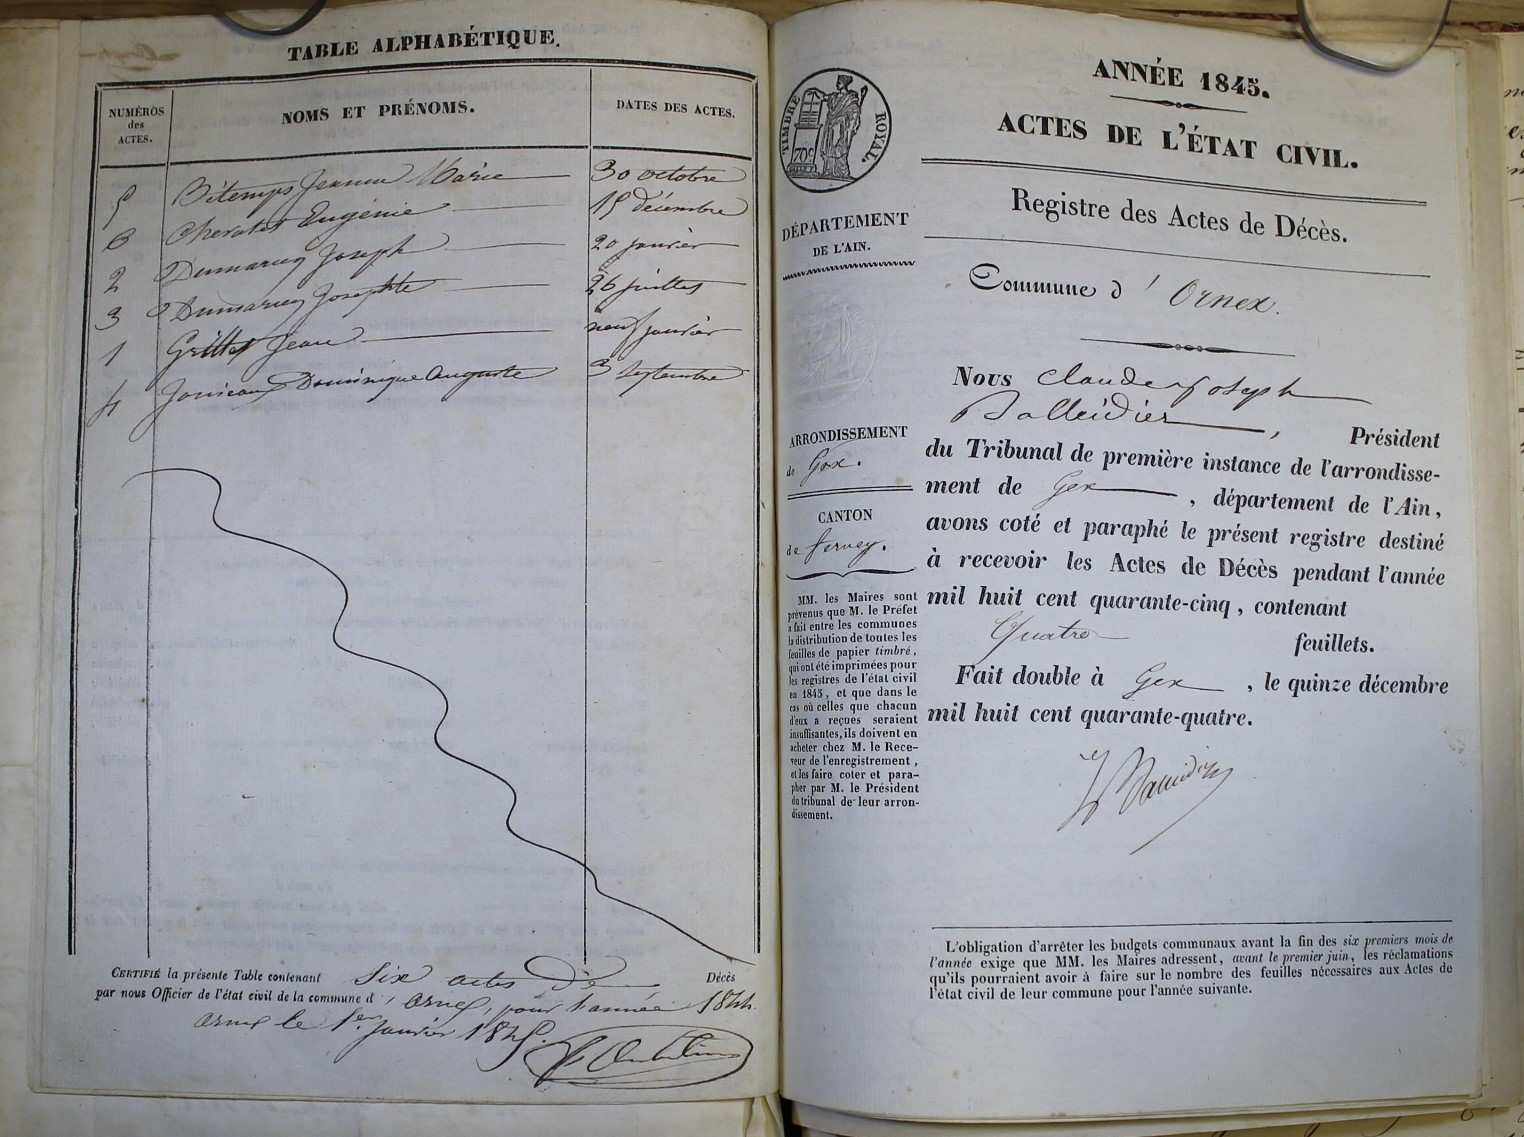 TABLE ALPHABÉTIQUE.
NUMÉROS des ACTES. NOMS ET PRÉNOMS. DATES DES ACTES.
5 Bétemps Jeanne Marie 30 octobre
6 Eugénie 15 décembre
2 Dumarest Joseph 20 janvier
3 Dumarest Josephte 26 juillet
1 Grillet Jean neuf janvier
4 Dominique Auguste 3 septembre
CERTIFIÉ la présente Table contenant Six actes de Décès
par nous Officier de l'état civil de la commune d' ornex, pour l'année 1844
ornex le 1er janvier 1845.
TIMBRE ROYAL.
70c
DÉPARTEMENT
DE L'AIN.
ARRONDISSEMENT
de Gex.
CANTON
de ferney.
MM. les Maires sont
prévenus que M. le Préfet
a fait entre les communes
la distribution de toutes les
feuilles de papier timbré,
qui ont été imprimées pour
les registres de l'état civil
en 1845, et que dans le
cas où celles que chacun
d'eux a reçues seraient
insuffisantes, ils doivent en
acheter chez M. le Rece-
veur de l'enregistrement,
et les faire coter et para-
pher par M. le Président
du tribunal de leur arron-
dissement.
ANNÉE 1845.
ACTES DE L'ÉTAT CIVIL.
Registre des Actes de Décès.
Commune d' Ornex.
Nous Claude Joseph
Balleidier, Président
du Tribunal de première instance de l'arrondisse-
ment de Gex, département de l'Ain,
avons coté et paraphé le présent registre destiné
à recevoir les Actes de Décès pendant l'année
mil huit cent quarante-cinq, contenant
Quatre feuillets.
Fait double à Gex, le quinze décembre
mil huit cent quarante-quatre.
L'obligation d'arrêter les budgets communaux avant la fin des six premiers mois de
l'année exige que MM. les Maires adressent, avant le premier juin, les réclamations
qu'ils pourraient avoir à faire sur le nombre des feuilles nécessaires aux Actes de
l'état civil de leur commune pour l'année suivante.